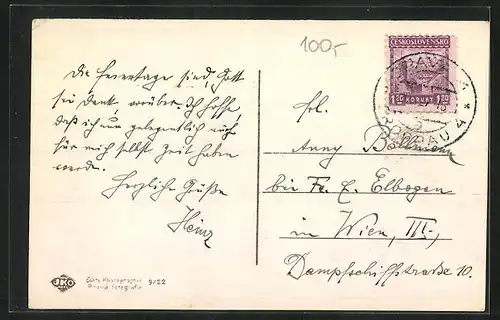 100,-
ČESKOSLOVENSKO
1.20 KORUNY 1.20
Die Feiertage sind, Gott
sei Dank, vorüber. Ich hoffe,
daß ich nun gelegentlich auch
für mich selbst Zeit haben
werde.
Herzliche Grüße
Heinz
Frl.
Anny
bei Fr. E. Elbogen
in Wien, III,
Dampfschiffstraße 10.
JKO
Echte Photographie
Pravá fotografie
9/22